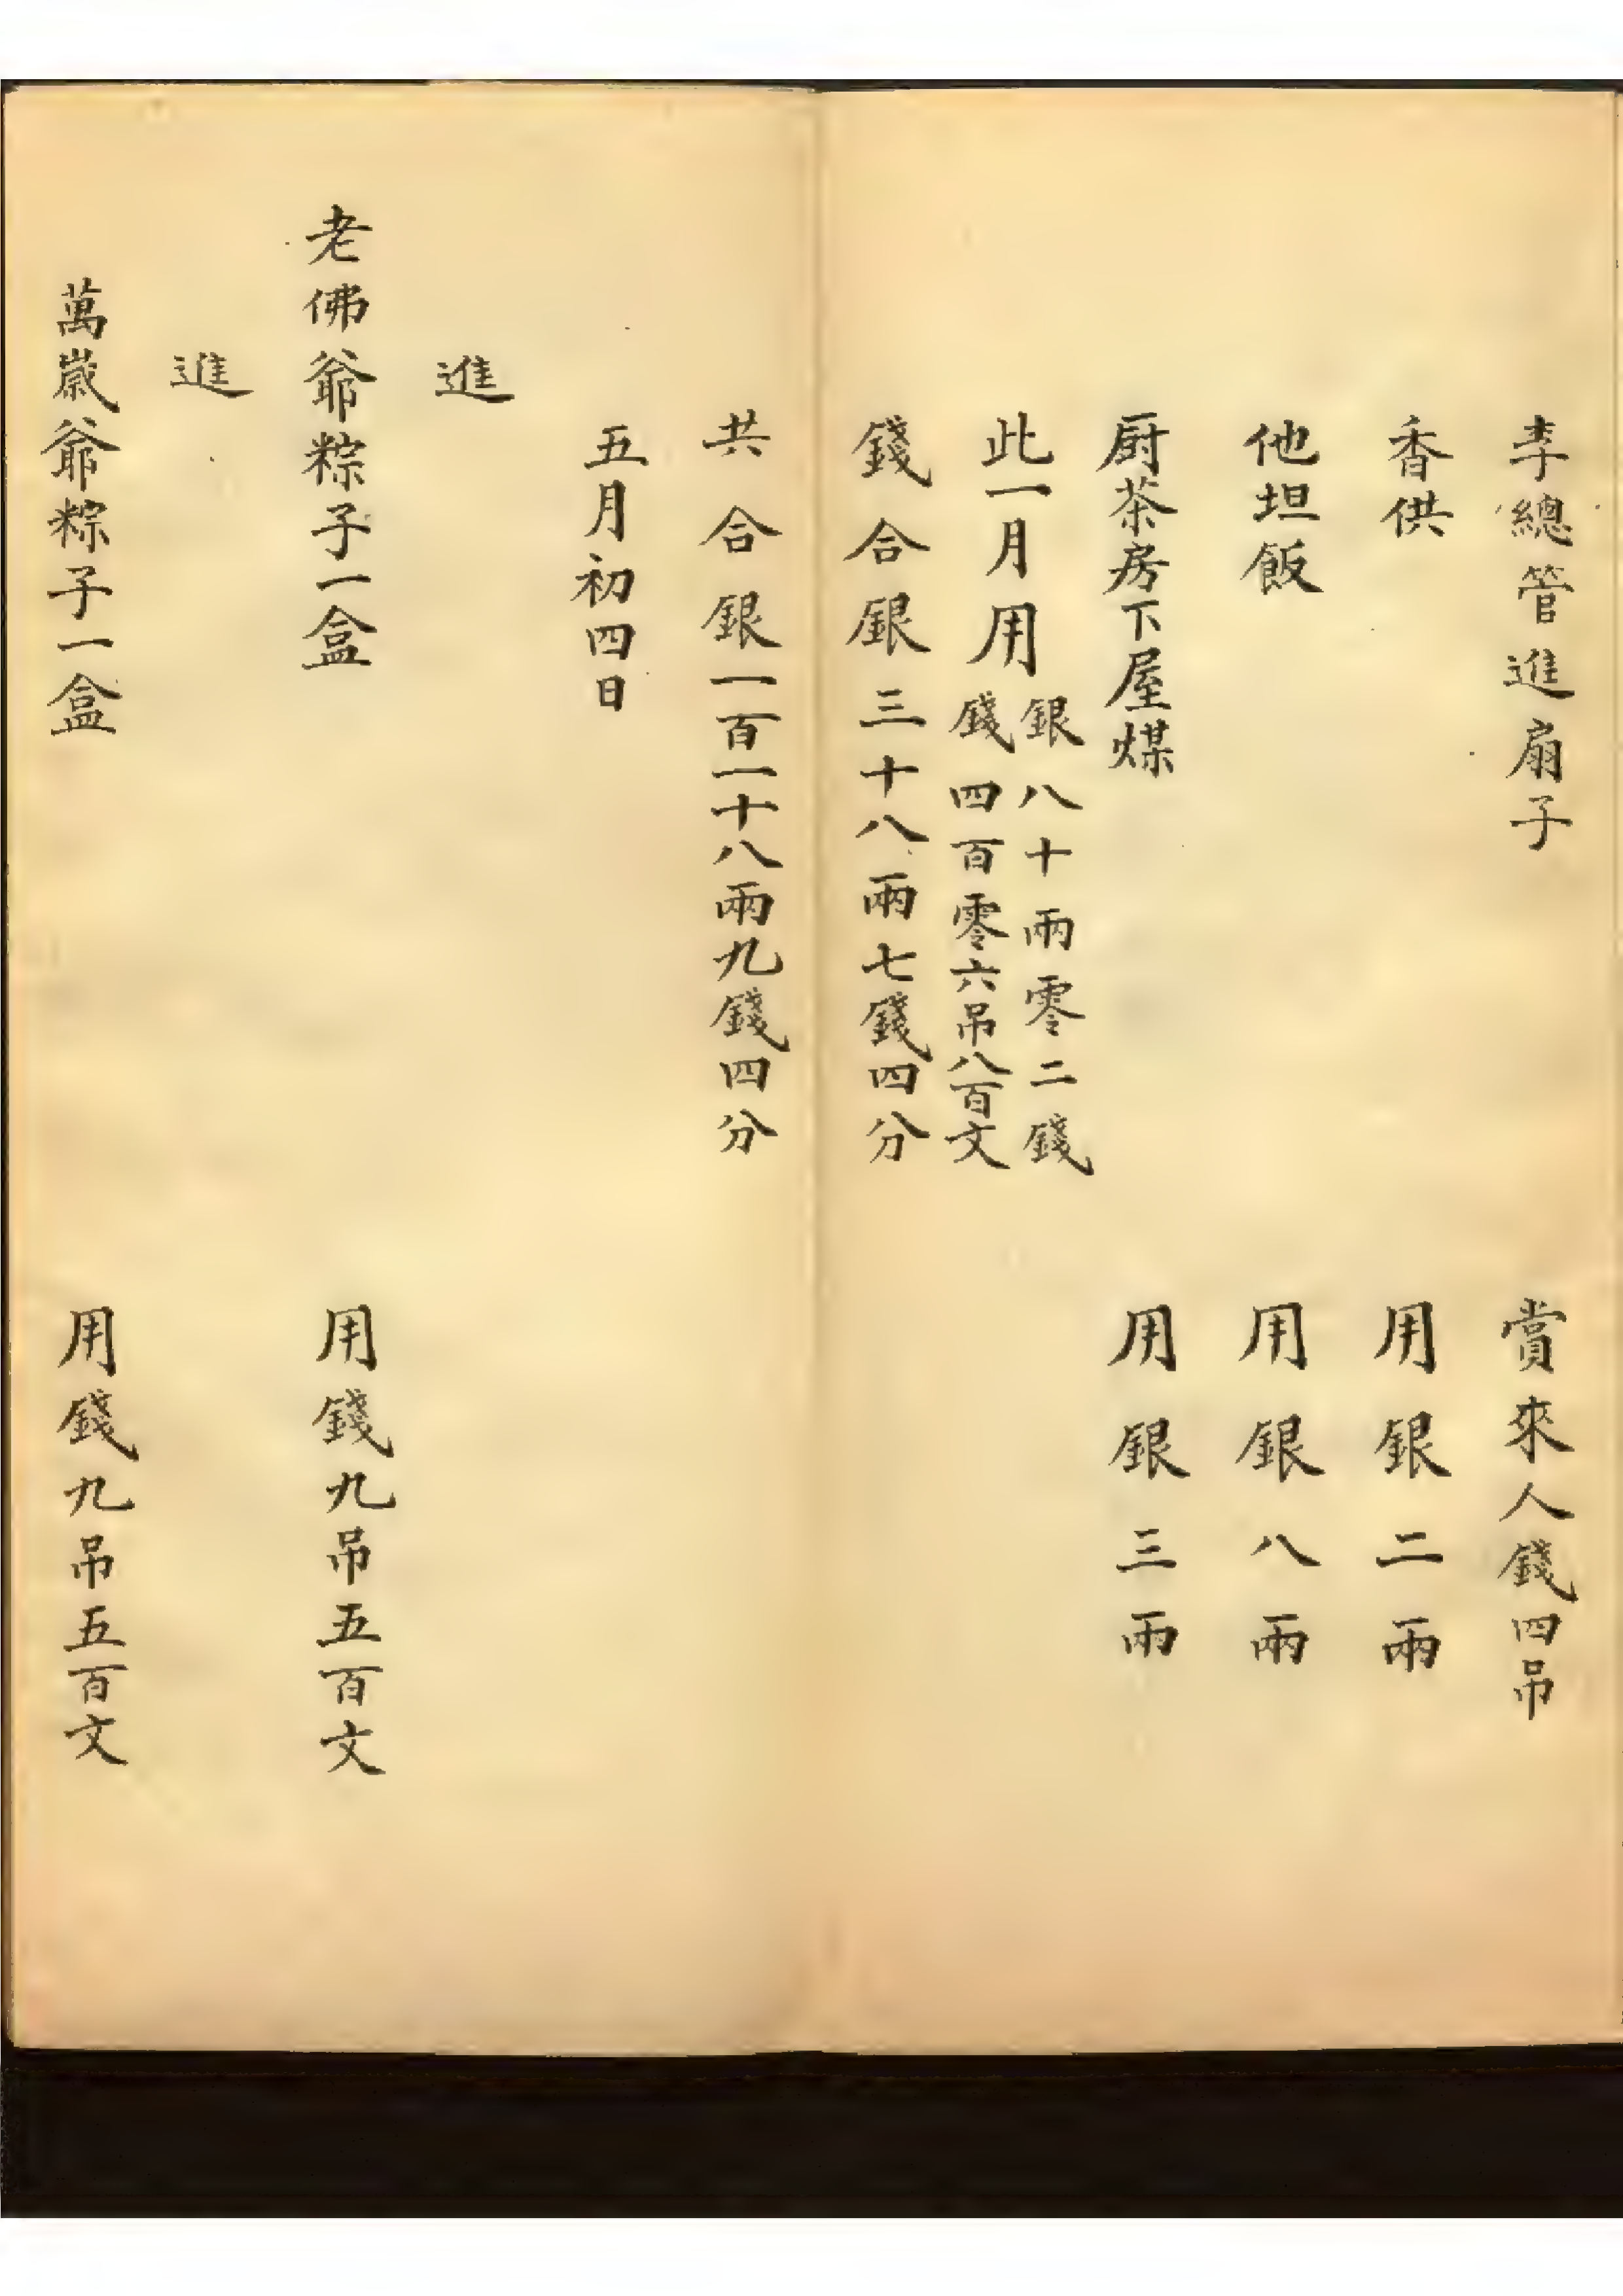 李總管進扇子　賞來人錢四吊
香供　用銀二兩
他坦飯　用銀八兩
厨茶房下屋煤　用銀三兩
此一月用
銀八十兩零二錢
錢四百零六吊八百文
錢合銀三十八兩七錢四分
共合銀一百一十八兩九錢四分
五月初四日
進
老佛爺粽子一盒　用錢九吊五百文
進
萬歲爺粽子一盒　用錢九吊五百文